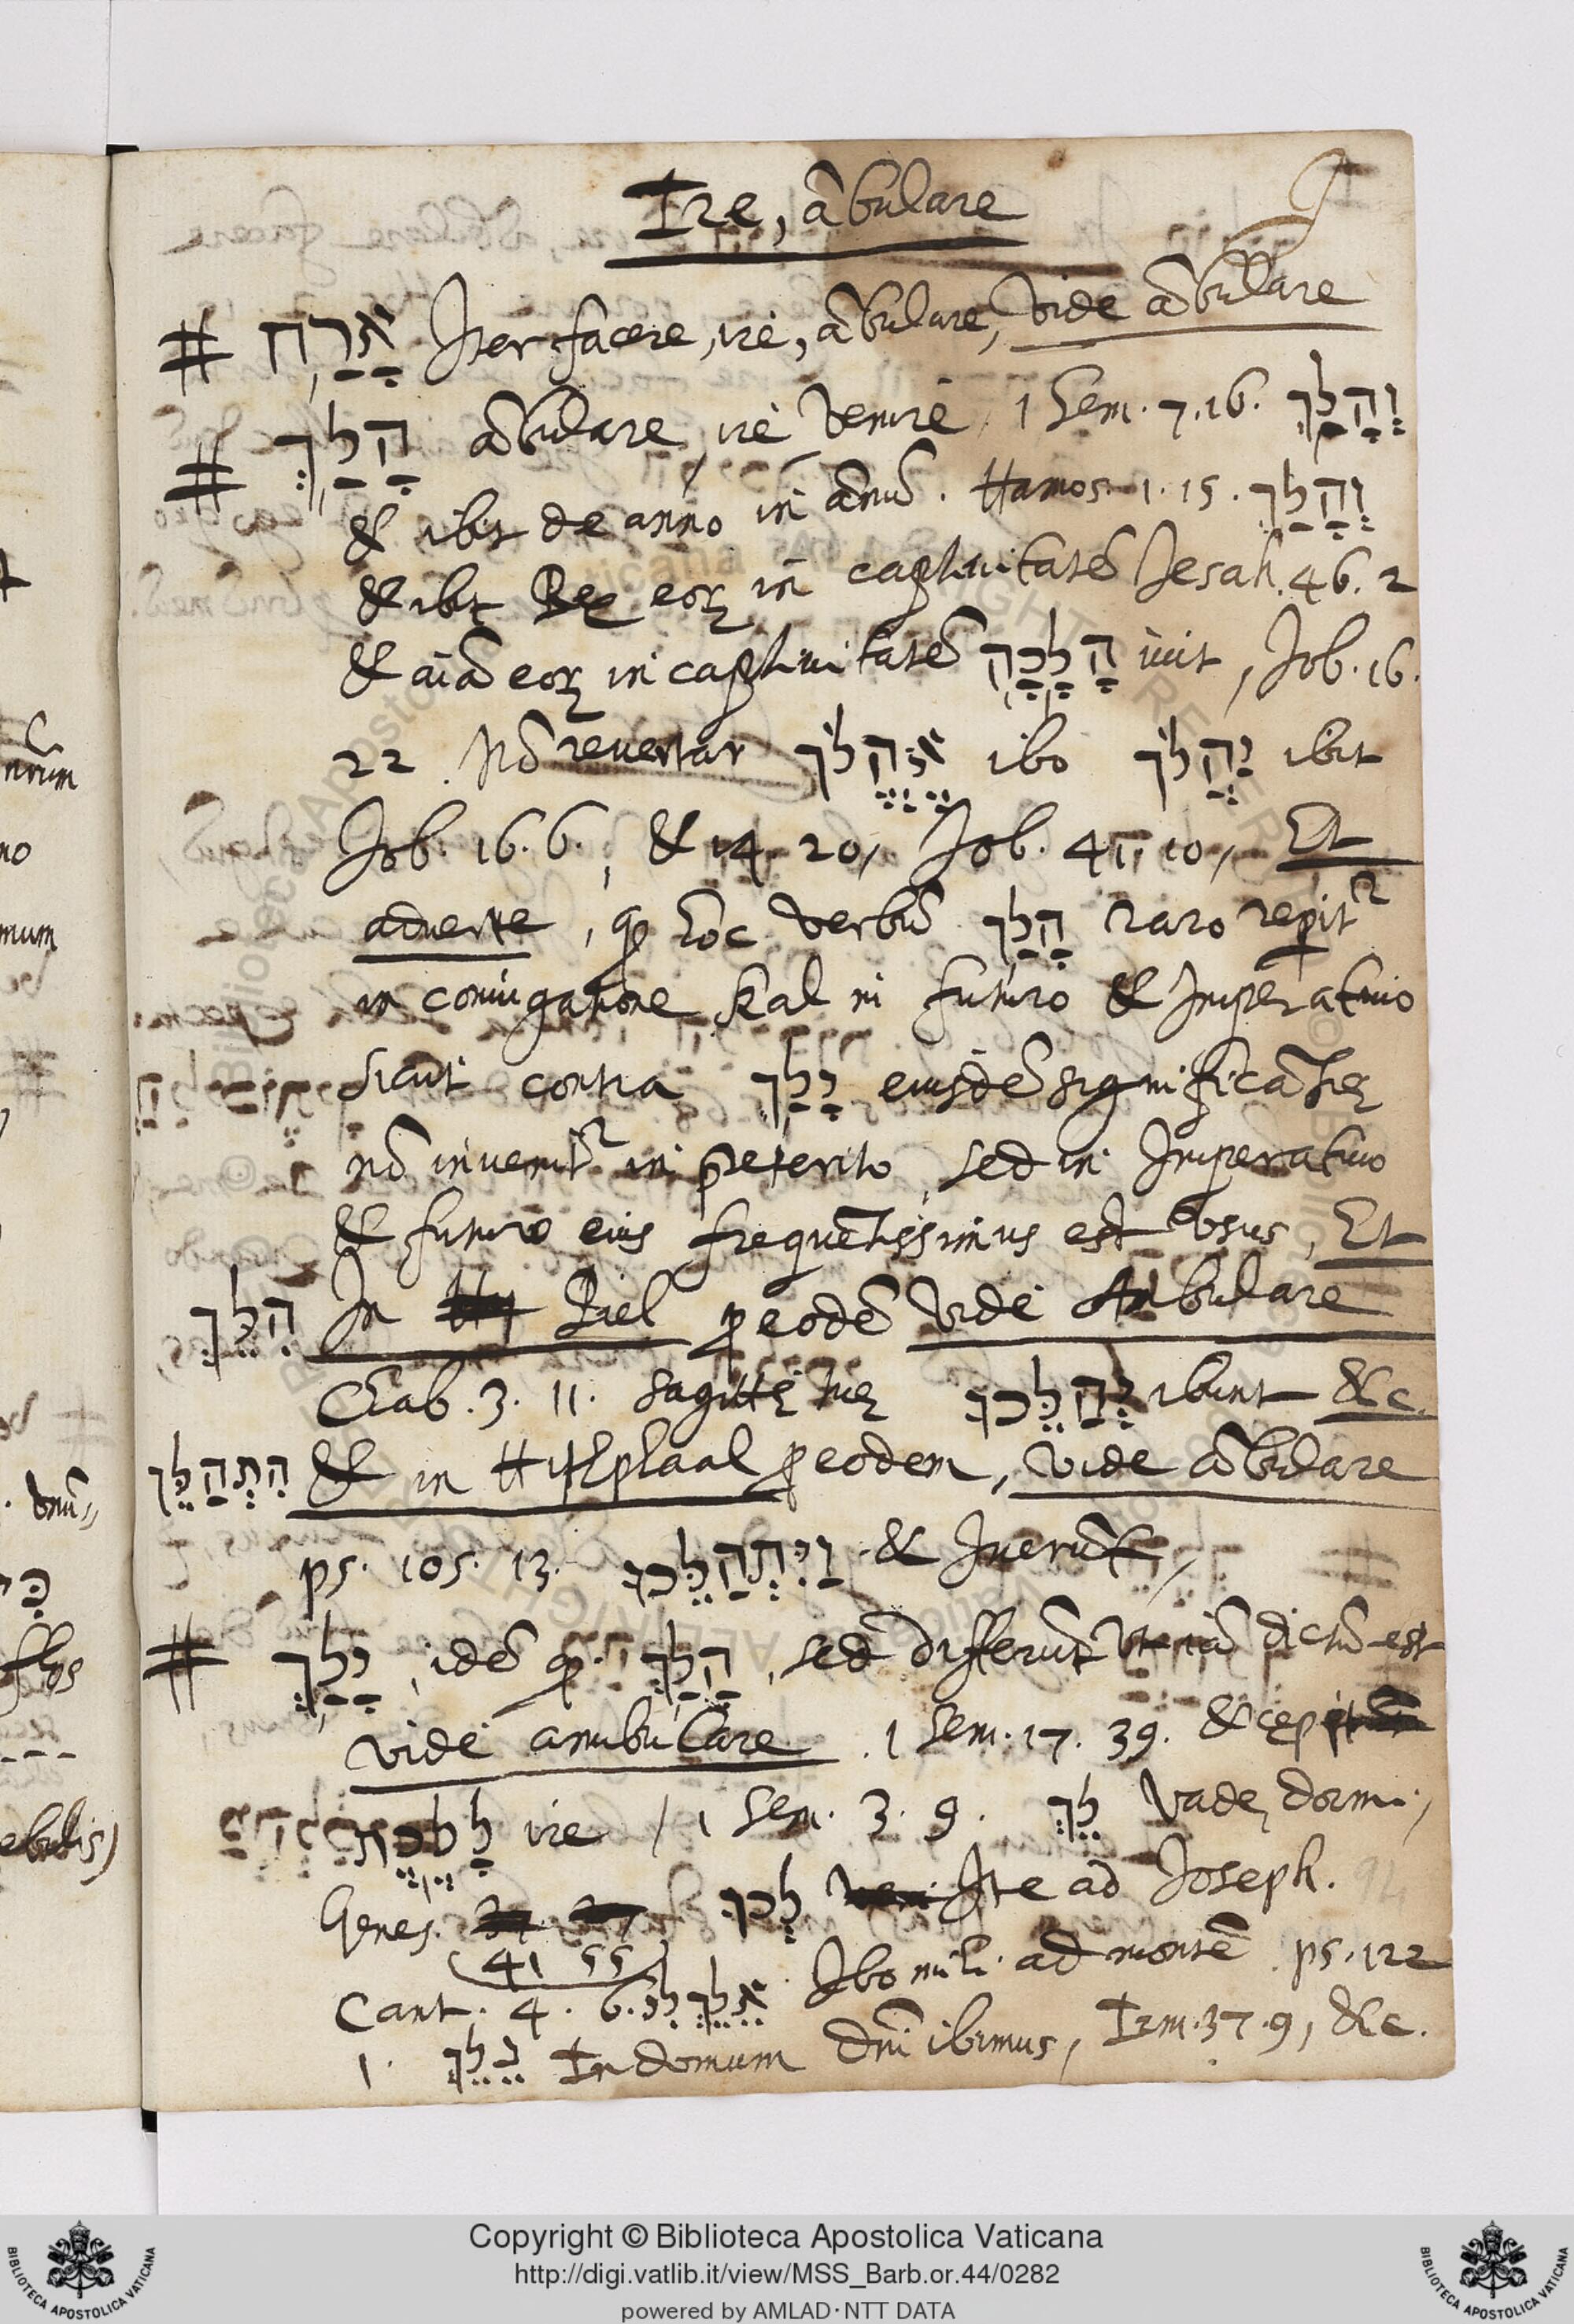 Ire, ãbulare
# אָרַח Iter facere, ire, ãbulare, vide ãbulare
# הָלַךְ ãbulare, ire venire, 1 Sem. 7. 16. וְהָלַךְ
& ibit de anno in ãnũ. Hamos. 1. 15. וְהָלַךְ
& ibit Rex eoꝝ in captiuitatẽ Jesah. 46. 2
& aĩã eoꝝ in captiuitatẽ הָלָכָה iuit, Job. 16.
22. Nõ reuertar אֶהֱלֹךְ ibo יַהֲלֹךְ ibit
Job. 16. 6., & 14. 20, Job. 41. 10, Et
aduerte, qȝ hoc verbũ הָלַךְ raro repit̃
in coniugatione Kal in futuro & Imperatiuo
sicut contra יָלַךְ eiusdẽ significãtię
nõ inuenit̃ in p̃eterito, sed in Imperatiuo
& futuro eius frequẽtissimus est vsus, Et
הִלֵּךְ In Piel ꝓ eodẽ vide Ambulare
Chab. 3. 11. sagittę tuę יְהַלֵּכוּ ibunt &c.
הִתְהַלֵּךְ & in Hithphaal ꝓ eodem, vide ãbulare
ps. 105. 13. וַיִּתְהַלְּכוּ & Iuerũt,
# יָלַךְ, idẽ qȝ הָלַךְ, sed differũt vt iã dictũ est
vide ambulare. 1 Sem. 17. 39. & cępit
לָלֶכֶת ire / 1 Sem. 3. 9. לֵךְ Vade, dormi,
Genes. לְכוּ Ite ad Joseph.
41 55
Cant. 4. 6. אֵלֵךְ לִי Ibo mihi ad montẽ. ps. 122
1. נֵלֵךְ In domum Dñi ibimus, Irm. 37. 9, &c.
Copyright © Biblioteca Apostolica Vaticana
http://digi.vatlib.it/view/MSS_Barb.or.44/0282
powered by AMLAD·NTT DATA